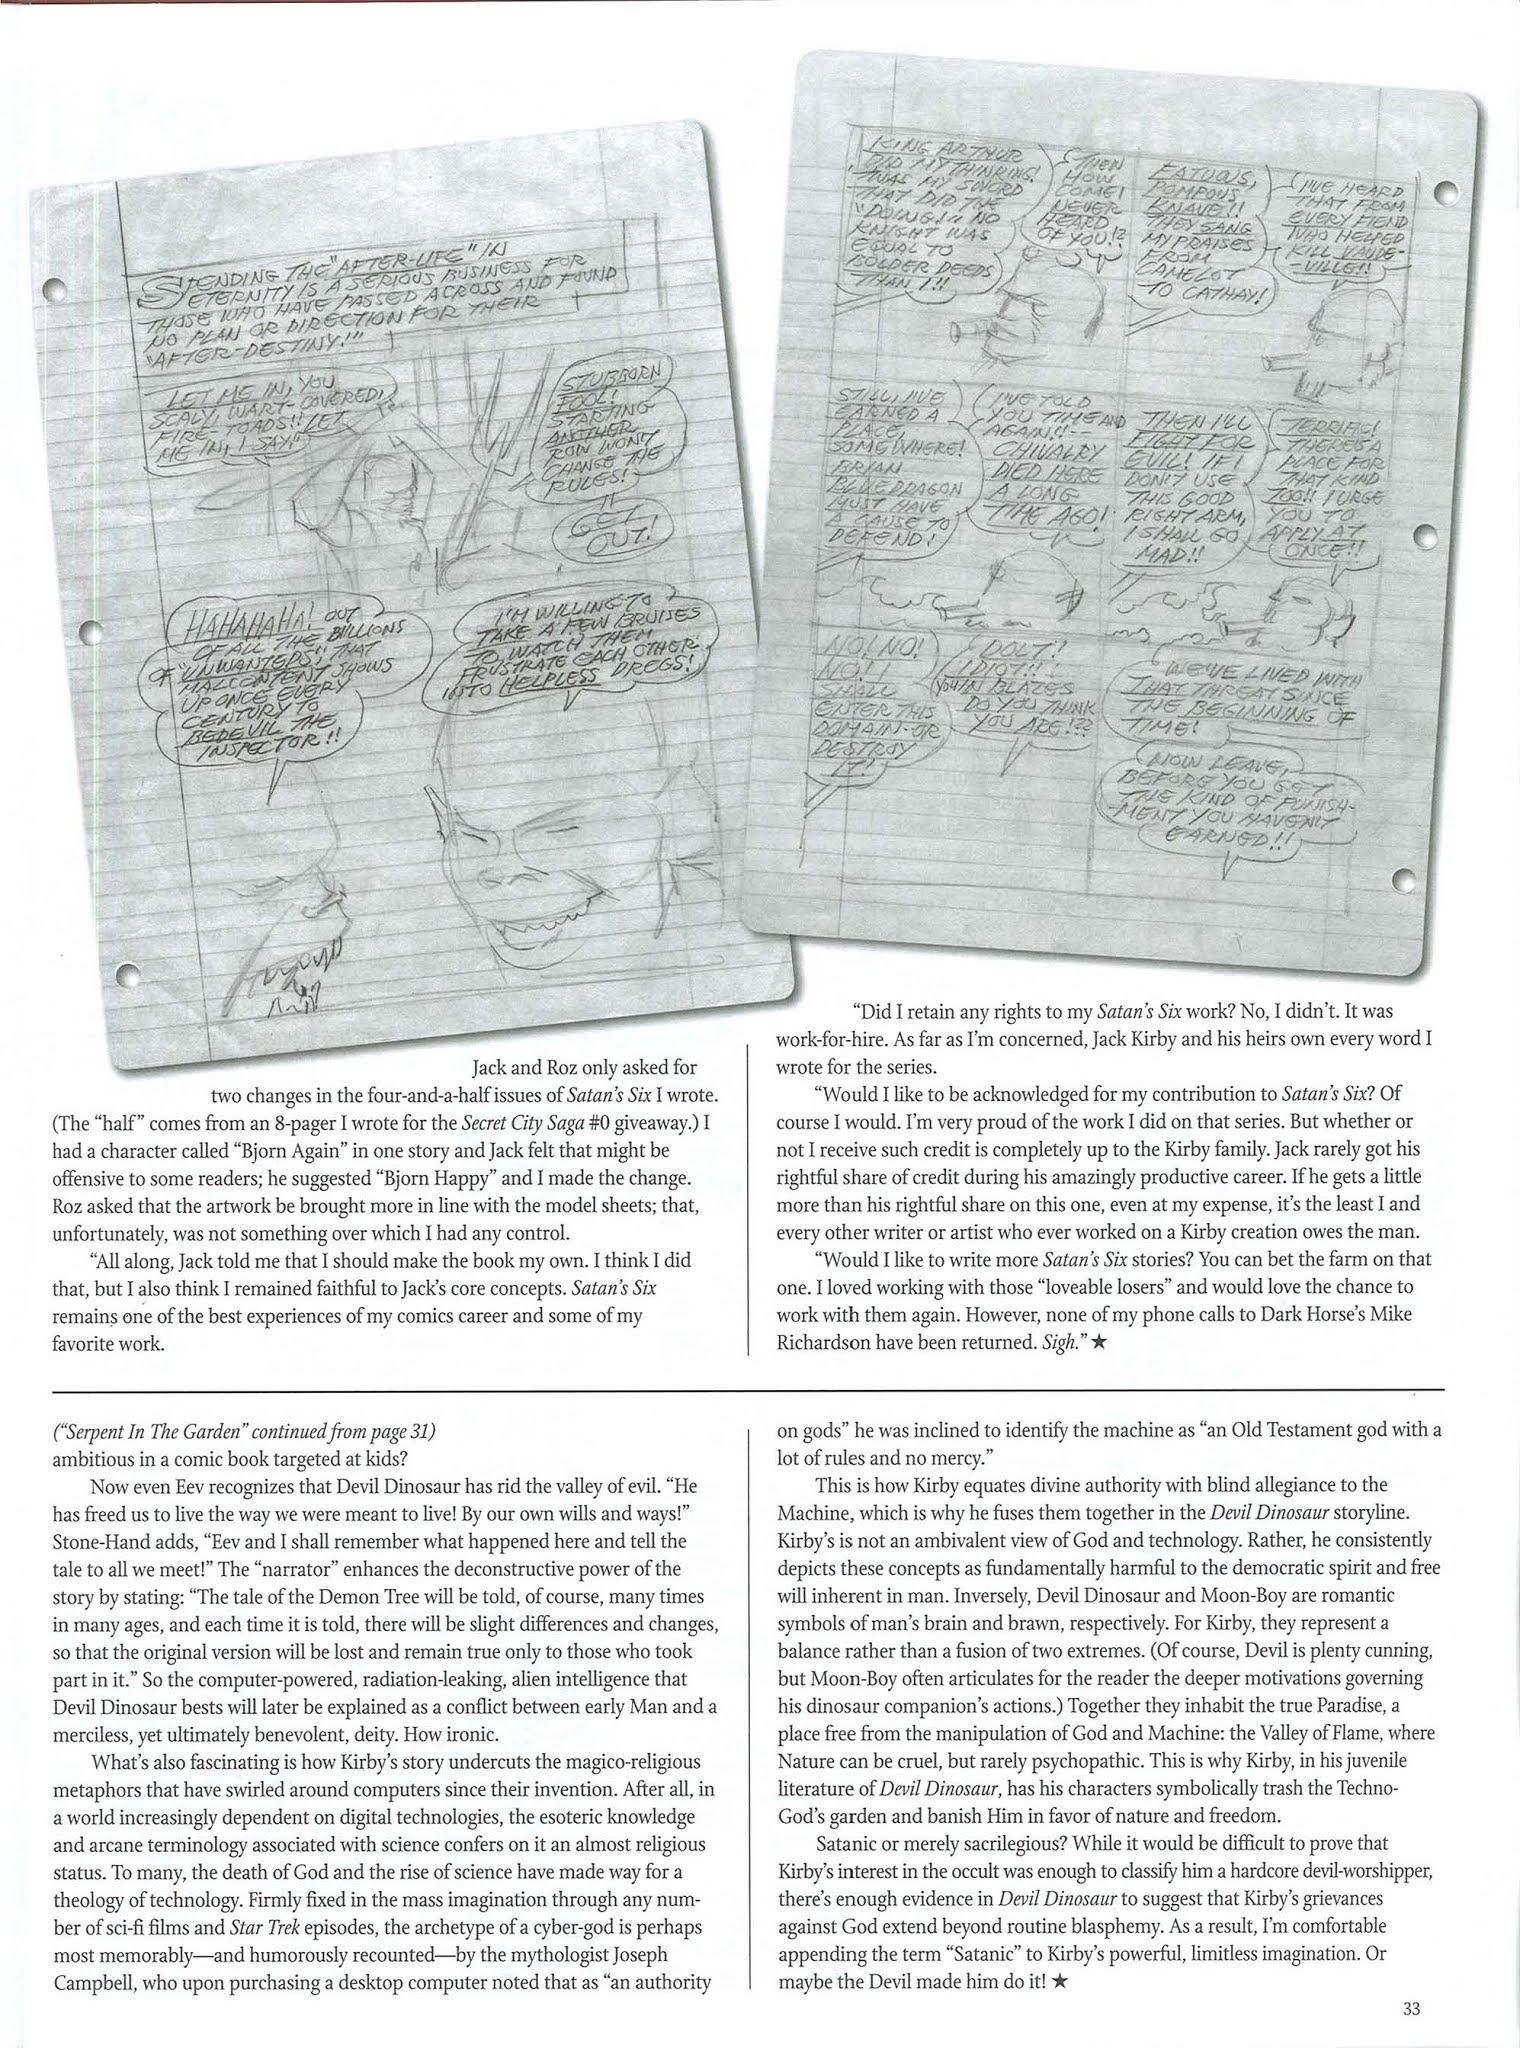 SPENDING THE "AFTER-LIFE" IN
ETERNITY IS A SERIOUS BUSINESS FOR
THOSE WHO HAVE PASSED ACROSS AND FOUND
NO PLAN OR DIRECTION FOR THEIR
"AFTER-DESTINY!"
LET ME IN, YOU
SCALY, WART-COVERED,
FIRE-TOADS!! LET
ME IN, I SAY!
STUBBORN
FOOL!
STARTING
ANOTHER
ROW WON'T
CHANGE THE
RULES!
GET
OUT!
HAHAHAHA! OUT
OF ALL THE BILLIONS
OF "UNWANTEDS", THAT
MALCONTENT SHOWS
UP ONCE EVERY
CENTURY TO
BEDEVIL THE
INSPECTOR!!
I'M WILLING TO
TAKE A FEW BRUISES
TO WATCH THEM
FRUSTRATE EACH OTHER
INTO HELPLESS DREGS!
KING ARTHUR
DID MY THINKING!
'TWAS MY SWORD
THAT DID THE
"DOING!" NO
KNIGHT WAS
EQUAL TO
BOLDER DEEDS
THAN I!!
THEN
HOW
COME I
NEVER
HEARD
OF YOU!?
FATUOUS,
POMPOUS
KNAVE!!
THEY SANG
MY PRAISES
FROM
CAMELOT
TO CATHAY!
I'VE HEARD
THAT FROM
EVERY FIEND
WHO HELPED
KILL VAUDE-
-VILLE!!
STILL, I'VE
EARNED A
PLACE,
SOMEWHERE!
BRIAN
BLUEDRAGON
MUST HAVE
A CAUSE TO
DEFEND!
I'VE TOLD
YOU TIME AND
AGAIN!!-
CHIVALRY
DIED HERE
A LONG
TIME AGO!
THEN I'LL
FIGHT FOR
EVIL! IF I
DON'T USE
THIS GOOD
RIGHT ARM,
I SHALL GO
MAD!!
TERRIFIC!
THERE'S A
PLACE FOR
THAT KIND
TOO!! I URGE
YOU TO
APPLY AT
ONCE!!
NO! NO!
NO!! I
SHALL
ENTER THIS
DOMAIN-OR
DESTROY
IT!
DOLT!
IDIOT!!!
IN BLAZES
DO YOU THINK
YOU ARE!??
WE'VE LIVED WITH
THAT THREAT SINCE
THE BEGINNING OF
TIME!
NOW LEAVE,
BEFORE YOU GET
THE KIND OF PUNISH-
-MENT YOU HAVEN'T
EARNED!!
Jack and Roz only asked for
two changes in the four-and-a-half issues of Satan's Six I wrote.
(The "half" comes from an 8-pager I wrote for the Secret City Saga #0 giveaway.) I
had a character called "Bjorn Again" in one story and Jack felt that might be
offensive to some readers; he suggested "Bjorn Happy" and I made the change.
Roz asked that the artwork be brought more in line with the model sheets; that,
unfortunately, was not something over which I had any control.
"All along, Jack told me that I should make the book my own. I think I did
that, but I also think I remained faithful to Jack's core concepts. Satan's Six
remains one of the best experiences of my comics career and some of my
favorite work.
"Did I retain any rights to my Satan's Six work? No, I didn't. It was
work-for-hire. As far as I'm concerned, Jack Kirby and his heirs own every word I
wrote for the series.
"Would I like to be acknowledged for my contribution to Satan's Six? Of
course I would. I'm very proud of the work I did on that series. But whether or
not I receive such credit is completely up to the Kirby family. Jack rarely got his
rightful share of credit during his amazingly productive career. If he gets a little
more than his rightful share on this one, even at my expense, it's the least I and
every other writer or artist who ever worked on a Kirby creation owes the man.
"Would I like to write more Satan's Six stories? You can bet the farm on that
one. I loved working with those "loveable losers" and would love the chance to
work with them again. However, none of my phone calls to Dark Horse's Mike
Richardson have been returned. Sigh." ★
("Serpent In The Garden" continued from page 31)
ambitious in a comic book targeted at kids?
Now even Eev recognizes that Devil Dinosaur has rid the valley of evil. "He
has freed us to live the way we were meant to live! By our own wills and ways!"
Stone-Hand adds, "Eev and I shall remember what happened here and tell the
tale to all we meet!" The "narrator" enhances the deconstructive power of the
story by stating: "The tale of the Demon Tree will be told, of course, many times
in many ages, and each time it is told, there will be slight differences and changes,
so that the original version will be lost and remain true only to those who took
part in it." So the computer-powered, radiation-leaking, alien intelligence that
Devil Dinosaur bests will later be explained as a conflict between early Man and a
merciless, yet ultimately benevolent, deity. How ironic.
What's also fascinating is how Kirby's story undercuts the magico-religious
metaphors that have swirled around computers since their invention. After all, in
a world increasingly dependent on digital technologies, the esoteric knowledge
and arcane terminology associated with science confers on it an almost religious
status. To many, the death of God and the rise of science have made way for a
theology of technology. Firmly fixed in the mass imagination through any num-
ber of sci-fi films and Star Trek episodes, the archetype of a cyber-god is perhaps
most memorably—and humorously recounted—by the mythologist Joseph
Campbell, who upon purchasing a desktop computer noted that as "an authority
on gods" he was inclined to identify the machine as "an Old Testament god with a
lot of rules and no mercy."
This is how Kirby equates divine authority with blind allegiance to the
Machine, which is why he fuses them together in the Devil Dinosaur storyline.
Kirby's is not an ambivalent view of God and technology. Rather, he consistently
depicts these concepts as fundamentally harmful to the democratic spirit and free
will inherent in man. Inversely, Devil Dinosaur and Moon-Boy are romantic
symbols of man's brain and brawn, respectively. For Kirby, they represent a
balance rather than a fusion of two extremes. (Of course, Devil is plenty cunning,
but Moon-Boy often articulates for the reader the deeper motivations governing
his dinosaur companion's actions.) Together they inhabit the true Paradise, a
place free from the manipulation of God and Machine: the Valley of Flame, where
Nature can be cruel, but rarely psychopathic. This is why Kirby, in his juvenile
literature of Devil Dinosaur, has his characters symbolically trash the Techno-
God's garden and banish Him in favor of nature and freedom.
Satanic or merely sacrilegious? While it would be difficult to prove that
Kirby's interest in the occult was enough to classify him a hardcore devil-worshipper,
there's enough evidence in Devil Dinosaur to suggest that Kirby's grievances
against God extend beyond routine blasphemy. As a result, I'm comfortable
appending the term "Satanic" to Kirby's powerful, limitless imagination. Or
maybe the Devil made him do it! ★
33